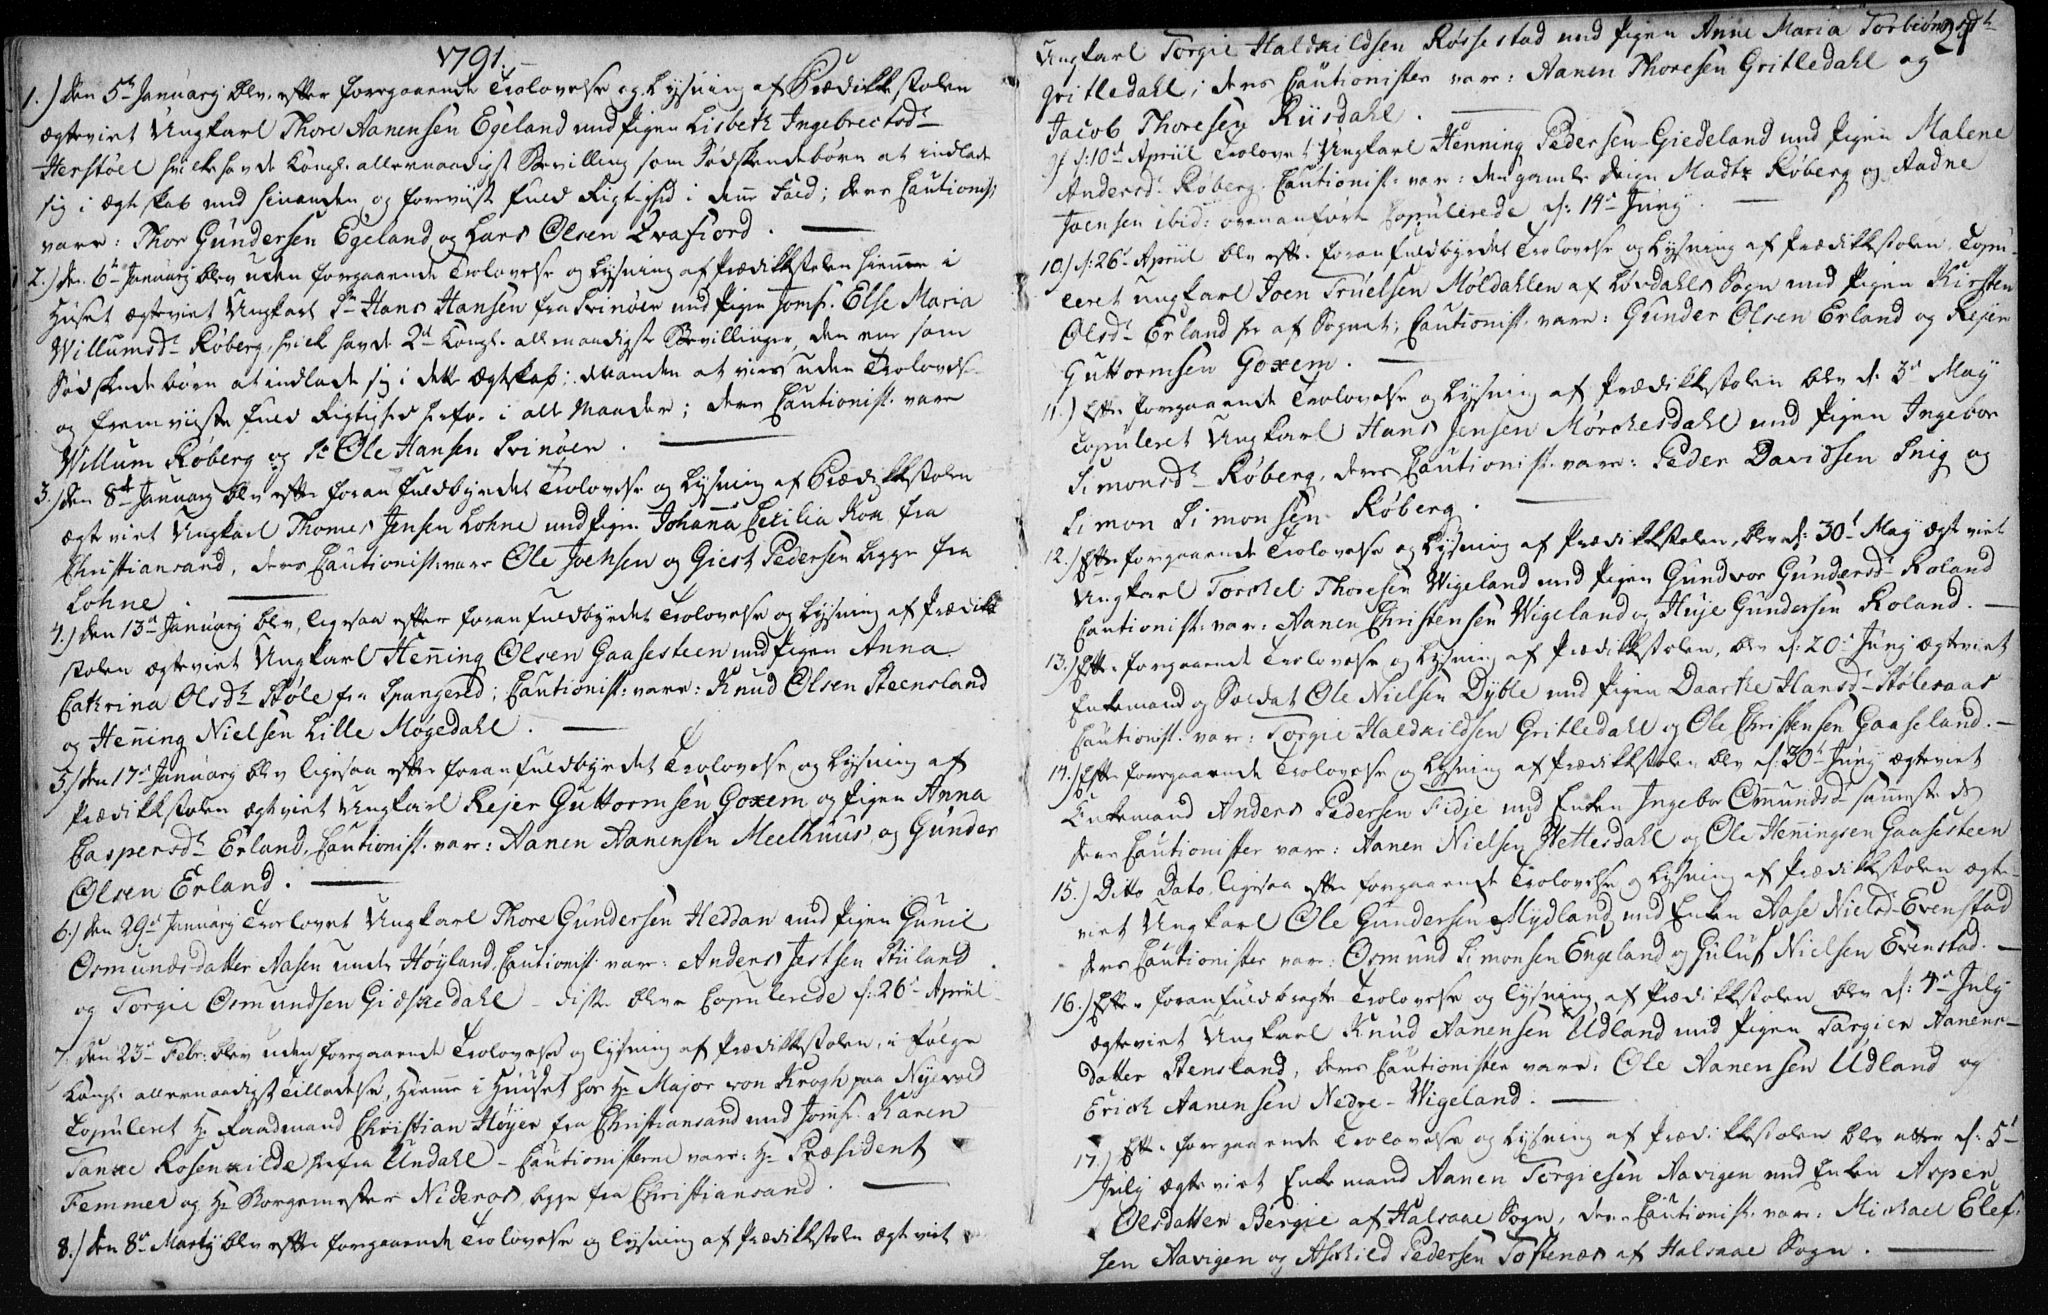 1791.
1.) den 5te January blev efter foregaaende Trolovelse og Lysning af Prædikkestolen
ægteviet Ungkarl Thore Aanensen Egeland med Pigen Lisbeth Ingebrectsdr
Herstøel hvilke havde Kongl. allernaadigst Bevilling som Sødskendebørn at indlade
sig i ægteskab med hinanden og foreviist fuld Rigtighed i denne Fald; deres Cautionist.
vare: Thor Gundersen Egeland og Lars Olsen Qvafiord.
2.) den 6te January blev uden foregaaende Trolovelse og Lysning af Prædikkestolen hiemme i
Huset ægteviet Ungkarl Sr Hans Hansen fra Svinøer med Pigen Jomfr. Else Maria
Willumsdr Røberg, hvilke havde 2de Kongl. allernaadigste Bevillinger, den ene som
Sødskendebørn at indlade sig i dette Ægteskab; den anden at vies uden Trolovelse
og fremviiste fuld Rigtighed herfor i alle Maader; deres Cautionist. vare
Willum Røberg og Sr Ole Hansen Svinøer.
3.) den 8de January blev efter foran fuldbyrdet Trolovelse og Lysning af Prædikkestolen
ægteviet Ungkarl Thomes Jensen Lohne med Pigen Johanna Cecilia Kox fra
Christiansand, deres Cautionist: vare Ole Jochsen og Giert Pedersen begge fra
Lohne.
4.) den 13de January blev, ligesaa efter foran fuldbyrdet Trolovelse og Lysning af Prædikke
stolen ægteviet Ungkarl Henning Olsen Gaasesteen med Pigen Anna
Cathrina Olsdr Støle fra Spangered; Cautionist: vare: Knud Olsen Steensland
og Henning Nielsen Lille Møgedahl.
5.) den 17de January blev ligesaa efter foran fuldbyrdet Trolovelse og Lysning af
Prædikkestolen ægteviet Ungkarl Rejer Guttormsen Goxem og Pigen Anna
Caspersdr Erland, Cautionist. vare: Aanen Aanensen Meelhuus, og Gunder
Olsen Erland.
6.) den 29de January Trolovet Ungkarl Thore Gundersen Heddan med Pigen Gunil
Osmunds-datter Aasen under Høyland, Cautionist: vare: Anders Jertsen Stüland
og Torgie Osmundsen Gidskedahl - disse bleve Copulerede d: 26de Apriil.
7. den 23de Febr: blev uden foregaaende Trolovelse og Lysning af Prædikkestolen, i Følge
Kongl. allernaadigst Tilladelse, hiemme i Huuset hos Hr Major von Krogh paa Nyevold
Copuleret Hr Raadmand Christian Høyer fra Christiansand med Jomfr. Karen
Tanke Rosenkilde herfra Undahl - Cautionisterne vare: Hr Præsident
Femmer og Hr Borgemester Nideros begge fra Christiansand.
8.) den 8de Marty blev efter foregaaende Trolovelse og Lysning af Prædikkestolen ægteviet
21
Ungkarl Torgie Haldkildsen Røssestad med Pigen Anne Maria Torbiørnsdr
Gritledahl; deres Cautionister vare: Aanen Thoresen Gritledahl og
Jacob Thoresen Riisdahl.
9) d: 10de Apriil Trolovet Ungkarl Henning Pedersen Giedeland med Pigen Malene
Andersdr Røberg. Cautionist: var: den gamle Reign Madtz Røberg og Aadne
Joensen ibid: ovenanførte Copulerede d: 14de Juny.
10.) d: 26de Apriil blev efter foran fuldbyrdet Trolovelse og Lysning af Prædikkestolen, Copu-
leret Ungkarl Joen Truelsen Moldahlen af Løvdahls Sogn med Pigen Kirsten
Olsdr Erland her af Sognet; Cautionist. vare: Gunder Olsen Erland og Rejer
Guttormsen Goxem.
11.) Efter foregaaende Trolovelse og Lysning af Prædikkestolen blev d. 3de May
Copuleret Ungkarl Hans Jensen Mørchesdahl med Pigen Ingebor
Simonsdr Røberg, deres Cautionist. vare: Peder Davidsen Snig og
Simon Simonsen Røberg.
12.) Efter foregaaende Trolovelse og Lysning af Prædikkestolen, blev d: 30te May ægteviet
Ungkarl Torkel Thoresen Wigeland med Pigen Gundvor Gundersdr Roland
Cautionist: var: Aanen Christensen Wigeland og Huje Gundersen Roland.
13.) Efter foregaaende Trolovelse og Lysning af Prædikkestolen, blev d: 20de Juny ægteviet
Enkemand og Soldat Ole Nielsen Dyble med Pigen Daarthe Hansdr Stølesaas
Cautionist. var: Torgie Haldkildsen Gritledahl og Ole Christensen Gaaseland.
14.) Efter foregaaende Trolovelse og Lysning af Prædikkestolen blev d: 30te Juny ægteviet
Enkemand Anders Pedersen Fidje med Enken Ingebor Omundsdr sammesteds
deres Cautionister vare: Aanen Nielsen Hettesdahl og Ole Henningsen Gaasesteen
15.) Ditto Dato, ligesaa efter foregaaende Trolovelse og Lysning af Prædikkestolen ægte-
viet Ungkarl Ole Gundersen Mydland med Enken Aase Nielsdr Evenstad
deres Cautionister var: Osmund Simonsen Engeland og Guluf Nielsen Evenstad.
16.) Efter foran fuldbragte Trolovelse og Lysning af Prædikkestolen blev d: 4de July
ægteviet Ungkarl Knud Aanensen Udland med Pigen Targier Aanens-
datter Stensland, deres Cautionister vare: Ole Aanensen Udland og
Erich Aanensen Nedre-Wigeland.
17.) Efter foregaaende Trolovelse og Lysning af Prædikkestolen blev atter d: 5te
July ægteviet Enkemand Aanen Torgiesen Aavigen med Enken Asper
Olsdatter Bergie af Halsaae Sogn, deres Cautionist. var: Mickael Elef-
sen Aavigen og Askild Pedersen Toftenes af Halsaae Sogn.